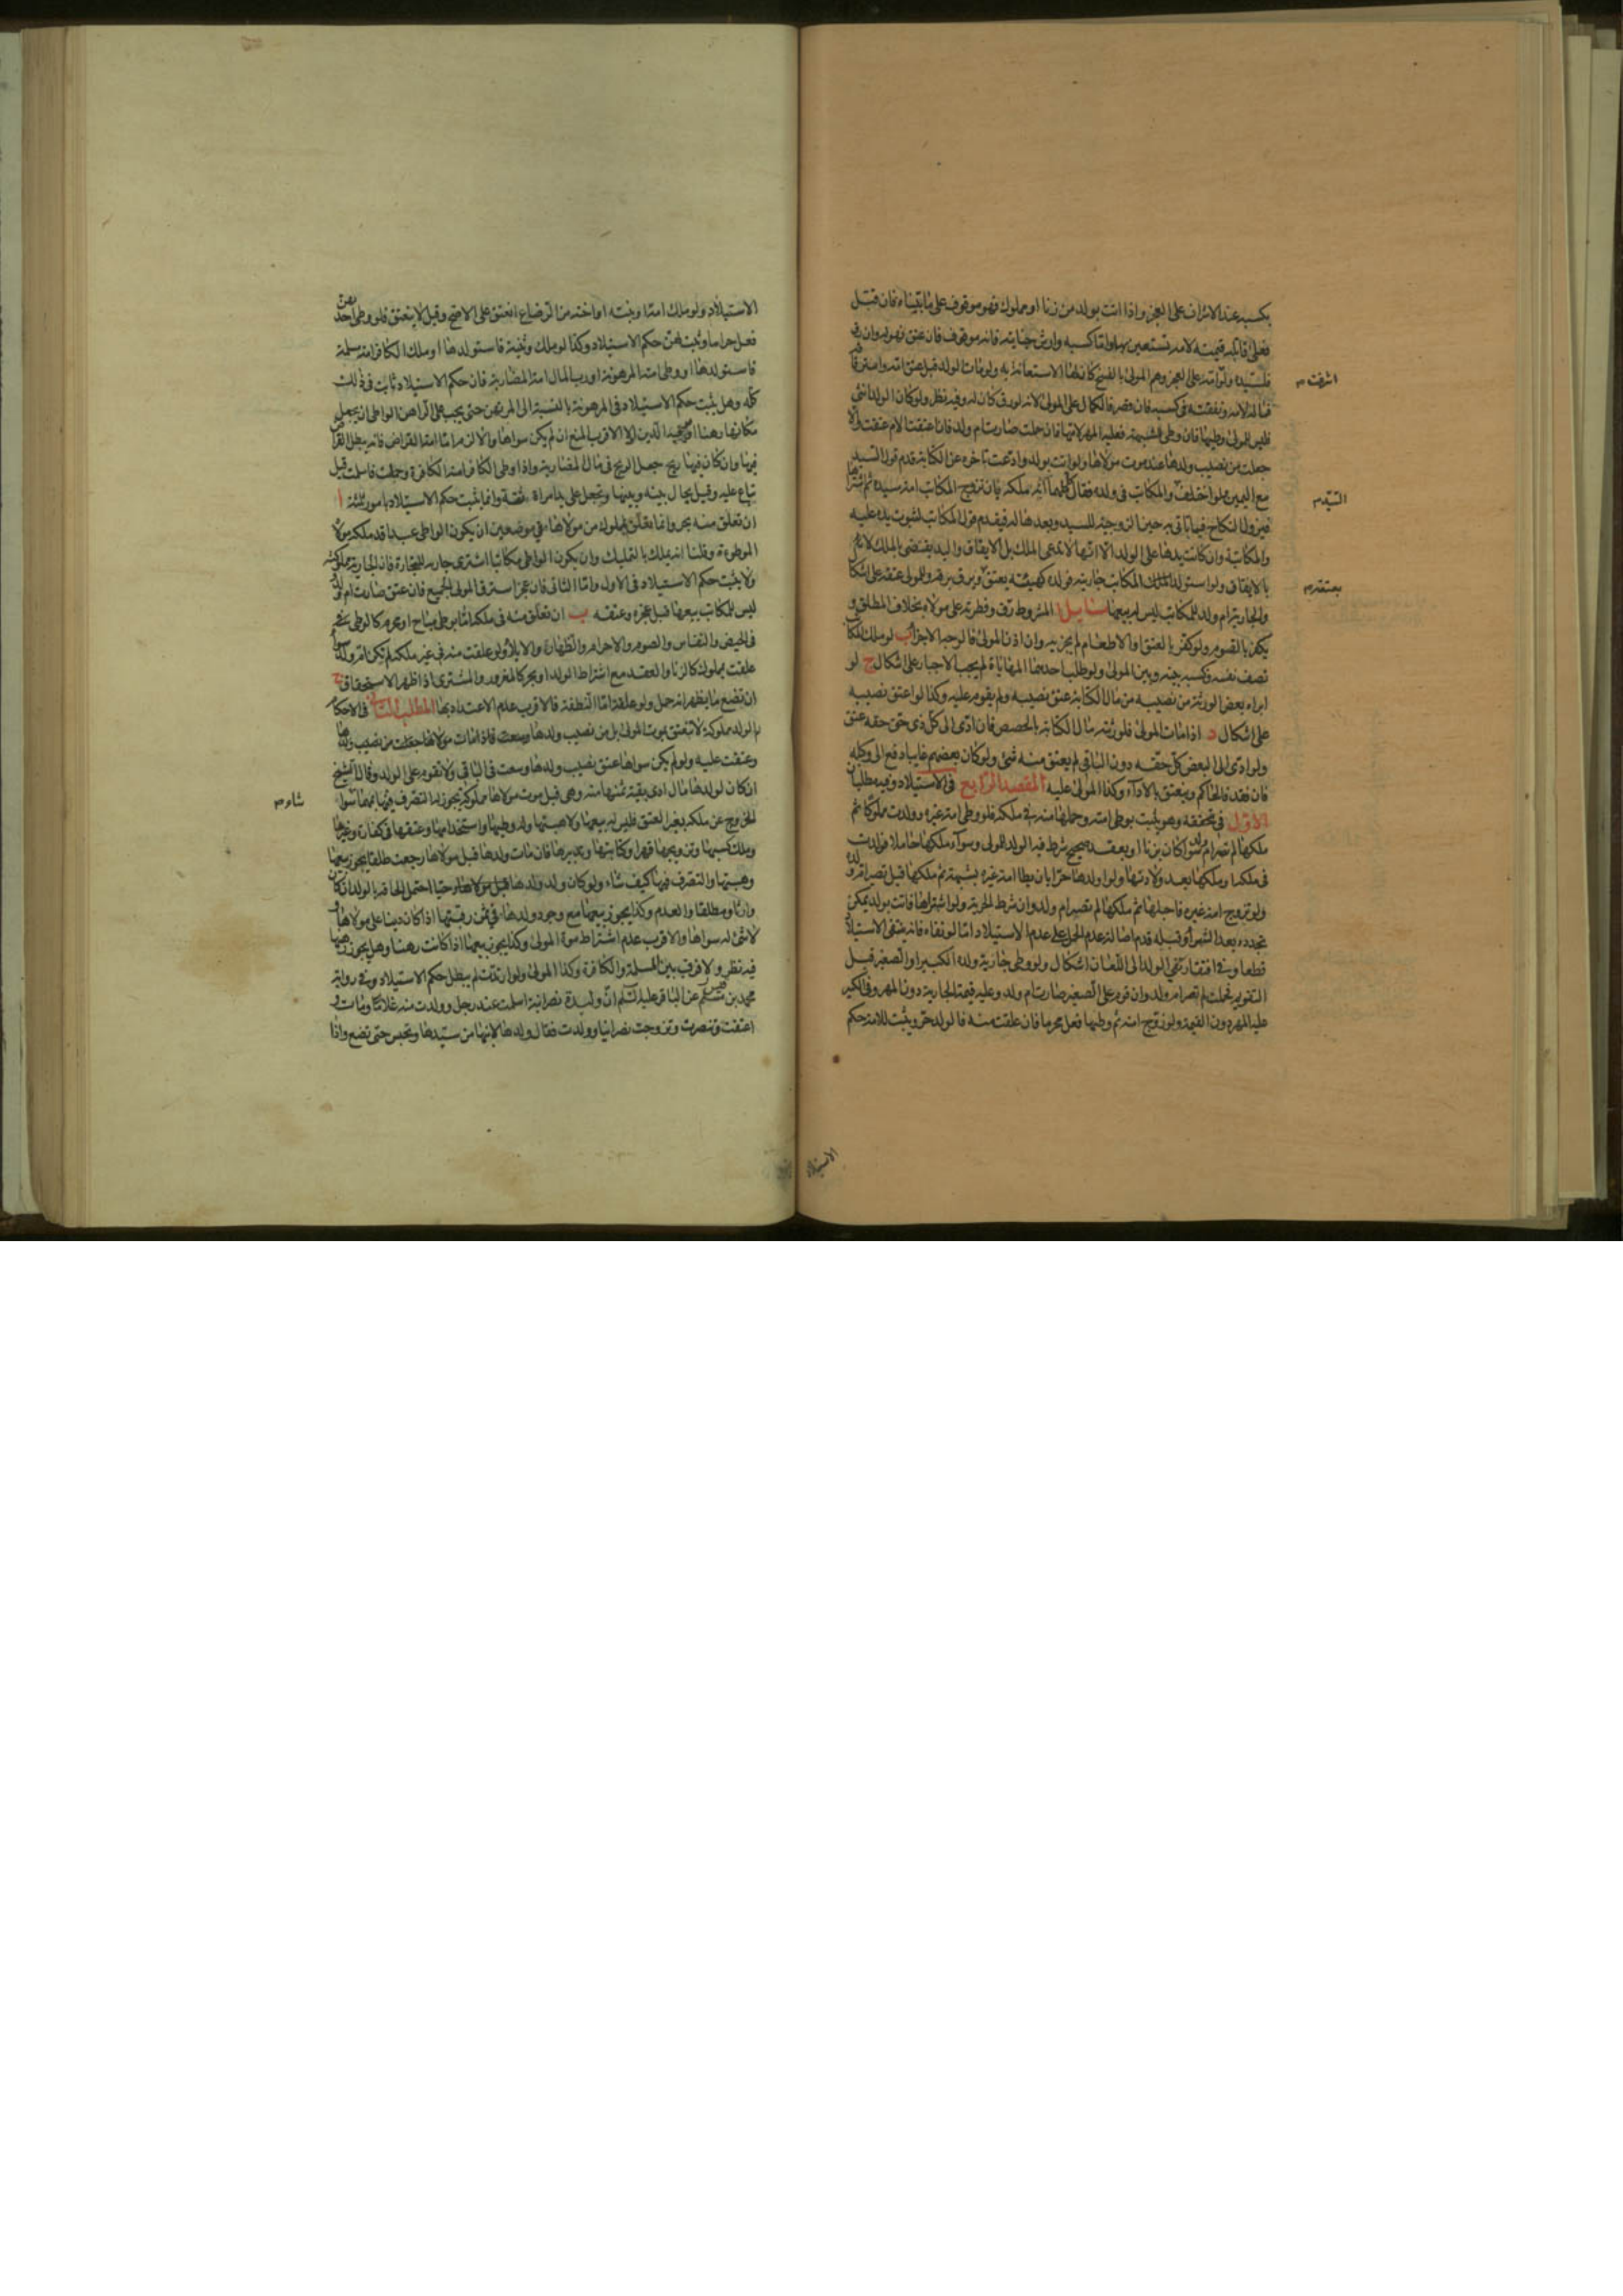 بكسبه عند الاشراف على العجز واذا اتت بولد من زنا او مملوك فهو موقوف على ما بيناه فان قتل
فعلى قاتله قيمته لامه تستعين بها واما كسبه وارش جناية فانه موقوف فان عتق فهو له وان رق
فلسيده ولو امه على العجز وهم المولى بالفسخ كان لها الاستعانة به ولو مات الولد قبل عتق امه واسترقاقه
اشرفت
فماله لامه ونفقته في كسبه فان قصر فالكمال على المولى لانه لو رق كان له وفيه نظر ولو كان الولد انثى
فليس للمولى وطيها فان وطئ لشبهة فعليه المهر لامها فان حملت صارت ام ولد فان اعتقت الام عتقت والا
جعلت من نصيب ولدها عند موت مولاها ولو اتت بولد وادعت تاخره عن الكتابة قدم قول السيد
مع اليمين ولو اختلف والمكاتب في ولده فقال كل منهما انه ملكه بان تزوج المكاتب امة سيده ثم اشتراها
السيد
فيزول النكاح فما تاتي به حين الزوجية للسيد وبعدها له فيقدم قول المكاتب لثبوت يده عليه
والمكاتبة وان كانت يدها على الولد الا انها لا تدعي الملك بل الايقاف واليد يقتضي بالملك لا تقضي
بالايقاف ولو استولد المكاتب جاريته فولده كهيئته يعتق ويرق برقه وللمولى عتقه على اشكال
بعتقه
والجارية ام ولد للمكاتب ليس له بيعها مسايل ا المشروط رق وفطرته على مولاه بخلاف المطلق و
يكفر بالصوم ولو كفر بالعتق او الاطعام لم يجزيه وان اذن المولى فالوجه الاجزاء ب لو ملك المكاتب
نصف نفسه فكسبه بينه وبين المولى ولو طلب احدهما المهاياة لم يجب الاجبار على اشكال ج لو
ابراه بعض الورثة من نصيبه من مال الكتابة عتق نصيبه ولم يقوم عليه وكذا لو اعتق نصيبه
على اشكال د اذا مات المولى فلورثته مال الكتابة بالحصص فان ادى الى كل ذي حق حقه عتق
ولو ادى الى البعض كل حقه دون الباقي لم يعتق منه شئ ولو كان بعضهم غايبا دفع الى وكيله
فان فقد فالحاكم وينعتق بالاداء وكذا المولى عليه المقصد الرابع في الاستيلاد وفيه مطلبان
الاول في تحققه وهو يثبت بوطي امته وحملها منه في ملكه فلو وطى امة غيره وولدت مملوكا ثم
ملكها لم تصر ام ولد سواء كان بزنا او بعقد صحيح شرط فيه الولد للمولى وسواء ملكها حاملا فولدت
في ملكه او ملكها بعد ولادتها ولو اولدها حرا بان يطا امة غيره بشبهة ثم ملكها قيل تصير ام ولد
ولو تزوج امة غيره فاحبلها ثم ملكها لم تصر ام ولد وان شرط الحرية ولو اشتراها فاتت بولد يمكن
تجدده بعد الشراء وقبله قدم اصالة عدم الحمل على عدم الاستيلاد اما لو نفاه فانه ينتفى الاستيلاد
قطعا وفي افتقار نفي الولد الى اللعان اشكال ولو وطى جارية ولده الكبير او الصغير قبل
التقويم فحملت لم تصر ام ولد وان قوم على الصغير صارت ام ولد وعليه قيمة الجارية دون المهر وفي الكبير
عليه المهر دون القيمة ولو زوج امته ثم وطيها فعل محرما فان علقت منه فالولد حر ويثبت للامة حكم
الاستيلاد
الاستيلاد ولو ملك امه او بنته او اخته من الرضاع انعتق على الاصح وقيل لا ينعتق فلو وطى احدهن
فعل حراما وثبت لهن حكم الاستيلاد وكذا لو ملك وثنية فاستولدها او ملك الكافر امة مسلمة
فاستولدها او وطى امته المرهونة او رب المال امة المضاربة فان حكم الاستيلاد ثابت في ذلك
كله وهل يثبت حكم الاستيلاد في المرهونة بالنسبة الى المرتهن حتى يجب على الراهن الواطى ان يجعل
مكانها رهنا او الدين ام لا الاقرب المنع ان لم يكن سواها والا لزم اما امة القراض فانه يبطل القراض
فيها وان كان فيها ربح جعل الربح في مال المضاربة واذا وطى الكافر امته الكافرة وحملت فاسلمت قيل
تباع عليه وقيل يحال بينه وبينها وتجعل على يد امراة ثقة وانما يثبت حكم الاستيلاد بامور ثلثة ا
ان تعلق منه بحر وانما تعلق بمملوك من مولاها في موضعين ان يكون الواطى عبدا قد ملكه مولاه
الموطوءة وقلنا انه يملك بالتمليك وان يكون الواطى مكاتبا اشترى جارية للتجارة فان الجارية مملوكته
ولا يثبت حكم الاستيلاد في الاول واما الثاني فان عجز استرق المولى الجميع فان عتق صارت ام ولد
ليس للمكاتب بيعها قبل عجزه وعتقه ب ان تعلق منه في ملكه اما بوطي مباح او محرم كالوطي
في الحيض والنفاس والصوم والاحرام والظهار والايلاء ولو علقت منه في غير ملكه لم تكن ام ولد سواء
علقت بمملوك كالزنا والعقد مع اشتراط الولد او بحر كالمغرور والمشترى اذا ظهر الاستحقاق ج
ان تضع ما يظهر انه حمل ولو علقة اما النطفة فالاقرب عدم الاعتداد بها المطلب الثاني في الاحكام
ام الولد مملوكة لا تنعتق بموت المولى بل من نصيب ولدها فاذا مات مولاها جعلت من نصيب ولدها
وعتقت عليه ولو لم يكن سواها عتق نصيب ولدها وسعت في الباقي ولا تقوم على الولد وقال الشيخ
ان كان لولدها مال ادى بقية ثمنها منه وهي قبل موت مولاها مملوكة يجوز له التصرف فيها بمهما
شاء
الخروج عن ملكه بغير العتق فليس له بيعها ولا هبتها وله وطيها واستخدامها وعتقها في كفارة وغيرها
وملك كسبها وتزويجها قهرا وكتابتها وتدبيرها فان مات ولدها قبل مولاها رجعت طلقا يجوز بيعها
وهبتها والتصرف فيها كيف شاء ولو كان ولد ولدها حيا احتمل الحاقه بالولد ان كان
وارثا ومطلقا والعدم وكذا يجوز بيعها مع وجود ولدها في ثمن رقبتها اذا كان دينا على مولاها و
لا شئ له سواها والاقرب عدم اشتراط موت المولى وكذا يجوز بيعها اذا كانت رهنا وهل يجوز رهنها
فيه نظر ولا فرق بين المسلمة والكافرة وكذا المولى ولو ارتدت لم يبطل حكم الاستيلاد وفي رواية
محمد بن قيس عن الباقر عليه السلم ان وليدة نصرانية اسلمت عند رجل وولدت منه غلاما ومات و
اعتقت وتنصرت وتزوجت نصرانيا وولدت فقال ولدها لابنها من سيدها وتحبس حتى تضع واذا